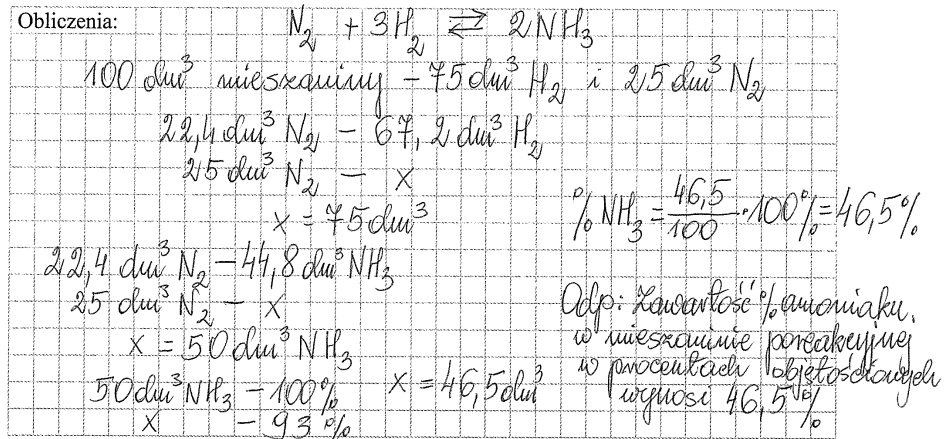 Obliczenia:
N₂ + 3H₂ ⇄ 2NH₃
100 dm³ mieszaniny – 75 dm³ H₂ i 25 dm³ N₂
22,4 dm³ N₂ – 67,2 dm³ H₂
25 dm³ N₂ – x
x = 75 dm³
22,4 dm³ N₂ – 44,8 dm³ NH₃
25 dm³ N₂ – x
x = 50 dm³ NH₃
50 dm³ NH₃ – 100%
x – 93%
x = 46,5 dm³
% NH₃ = 46,5/100 · 100% = 46,5%
Odp: Zawartość % amoniaku.
w mieszaninie poreakcyjnej
w procentach objętościowych
wynosi 46,5%